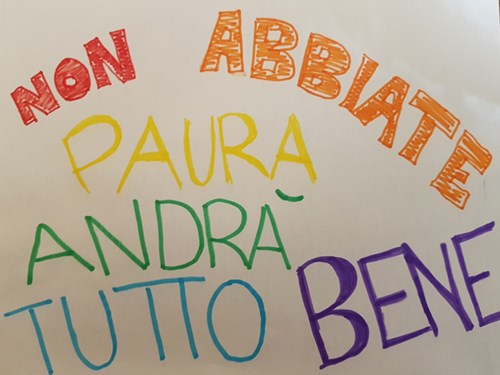 NON ABBIATE
PAURA
ANDRÀ
TUTTO BENE